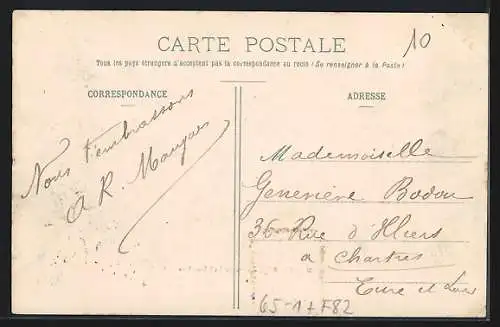 CARTE POSTALE
10
Tous les pays étrangers n'acceptent pas la correspondance au recto (Se renseigner à la Poste)
CORRESPONDANCE
Nous t'embrassons
R.
ADRESSE
Mademoiselle
Geneviève Bodou
36 Rue d'Illiers
à Chartres
Eure et Loir